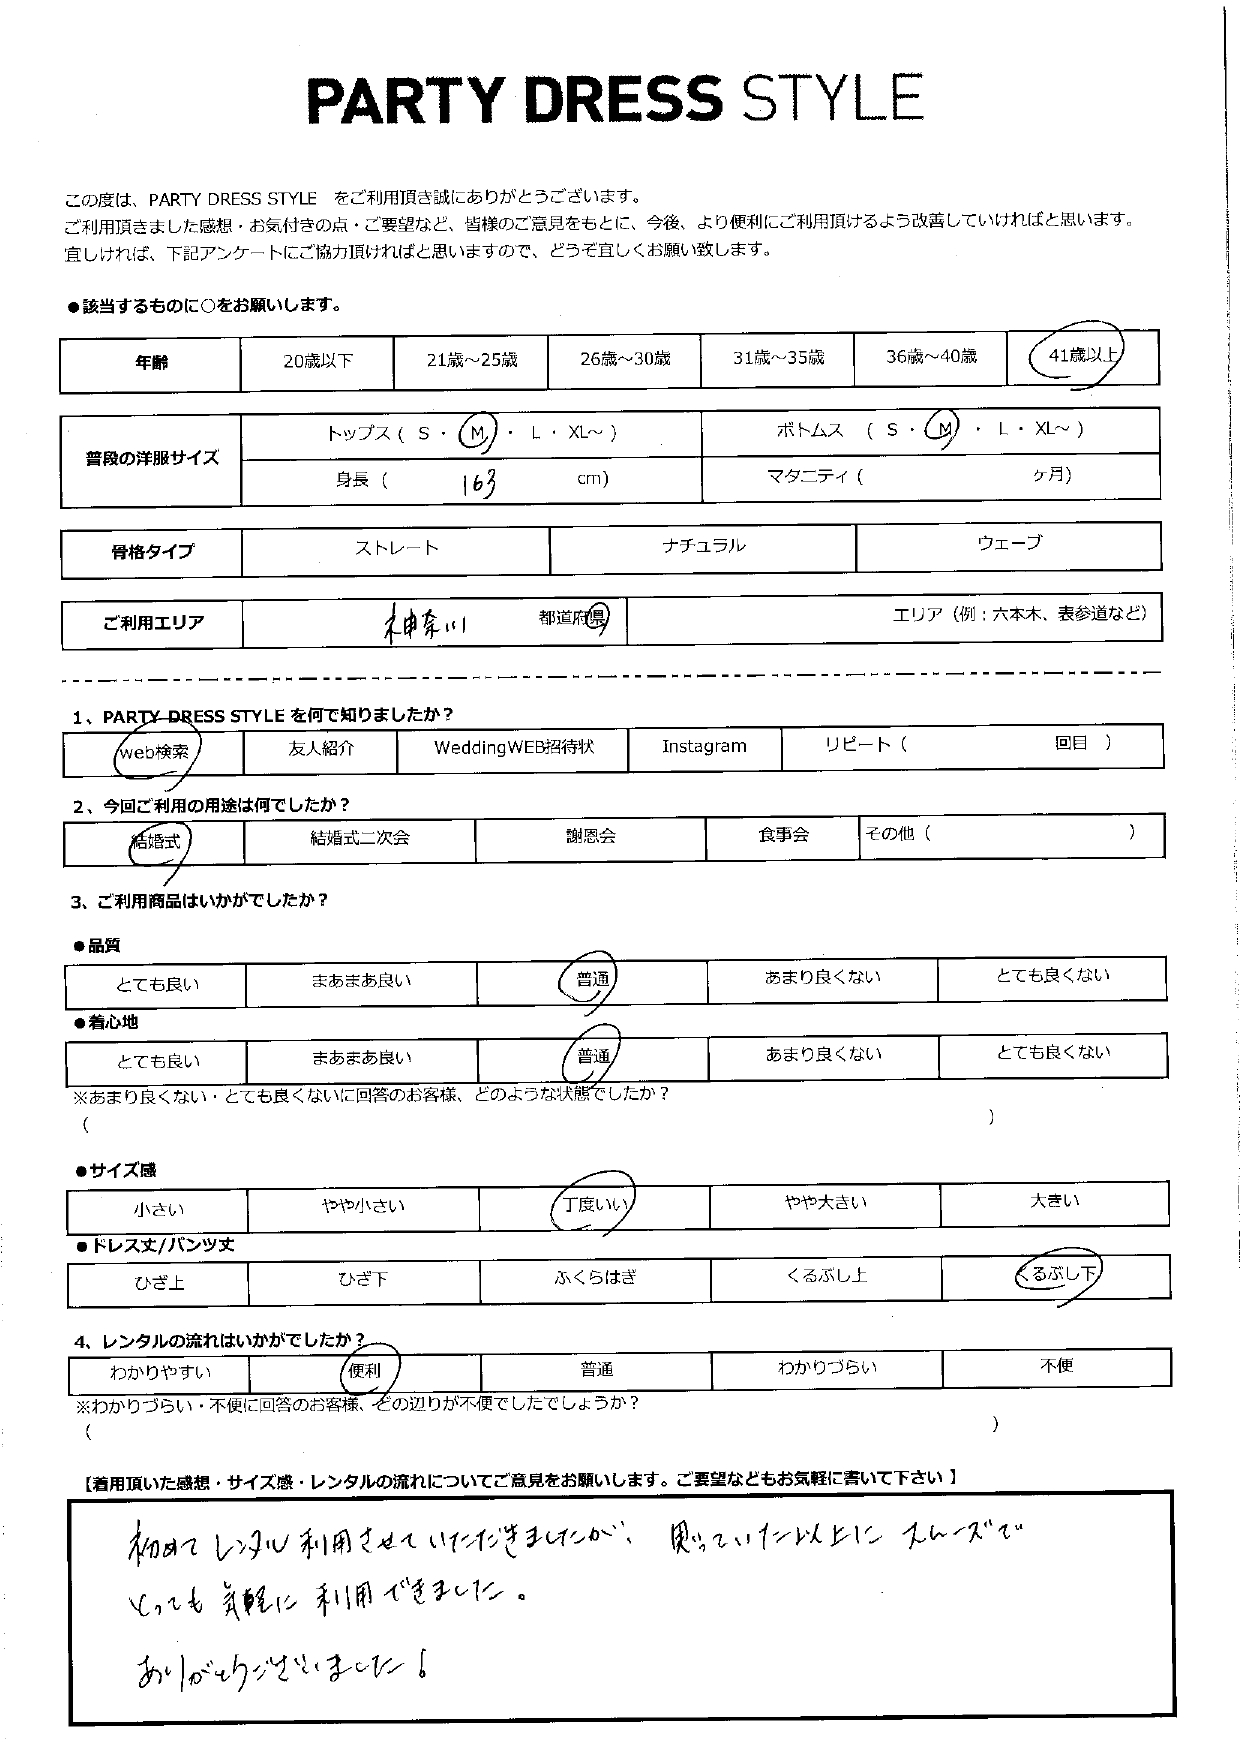 PARTY DRESS STYLE
この度は、PARTY DRESS STYLE をご利用頂き誠にありがとうございます。
ご利用頂きました感想・お気付きの点・ご要望など、皆様のご意見をもとに、今後、より便利にご利用頂けるよう改善していければと思います。
宜しければ、下記アンケートにご協力頂ければと思いますので、どうぞ宜しくお願い致します。
●該当するものに〇をお願いします。
年齢 20歳以下 21歳～25歳 26歳～30歳 31歳～35歳 36歳～40歳 41歳以上
普段の洋服サイズ
トップス ( S ・ M ・ L ・ XL～ ) ボトムス ( S ・ M ・ L ・ XL～ )
身長 ( 163 cm) マタニティ ( ケ月)
骨格タイプ ストレート ナチュラル ウェーブ
ご利用エリア 神奈川 都道府県 エリア（例：六本木、表参道など）
1、PARTY DRESS STYLE を何で知りましたか？
web検索 友人紹介 WeddingWEB招待状 Instagram リピート ( 回目 )
2、今回ご利用の用途は何でしたか？
結婚式 結婚式二次会 謝恩会 食事会 その他 ( )
3、ご利用商品はいかがでしたか？
●品質
とても良い まあまあ良い 普通 あまり良くない とても良くない
●着心地
とても良い まあまあ良い 普通 あまり良くない とても良くない
※あまり良くない・とても良くないに回答のお客様、どのような状態でしたか？
( )
●サイズ感
小さい やや小さい 丁度いい やや大きい 大きい
●ドレス丈/パンツ丈
ひざ上 ひざ下 ふくらはぎ くるぶし上 くるぶし下
4、レンタルの流れはいかがでしたか？
わかりやすい 便利 普通 わかりづらい 不便
※わかりづらい・不便に回答のお客様、どの辺りが不便でしたでしょうか？
( )
【着用頂いた感想・サイズ感・レンタルの流れについてご意見をお願いします。ご要望などもお気軽に書いて下さい】
初めてレンタル利用させていただきましたが、思っていた以上にスムーズで
とっても気軽に利用できました。
ありがとうございました！